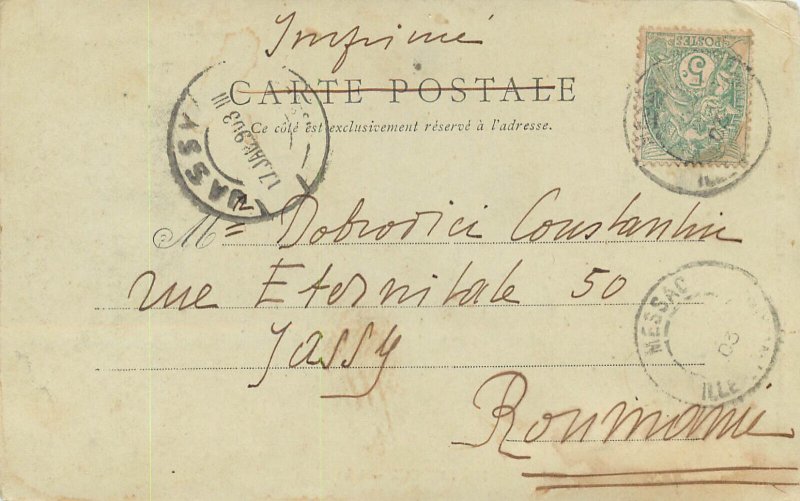 Imprimé
CARTE POSTALE
Ce côté est exclusivement réservé à l'adresse.
POSTES
5
ILLE
JASSY
17 JAN 903 III
M= Dobrovici Constantin
rue Eternitate 50
Jassy
Roumanie
MESSAC
03
ILLE